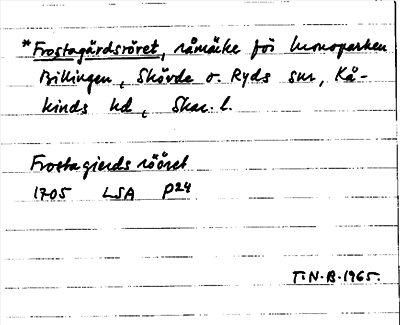 *Frostagärdsröret, råmärke för kronoparken
Billingen, Skövde o. Ryds snr, Kå-
kinds hd, Skar. l.
Frostagierds rööret
1705 LSA P24
T.N.B.1965.